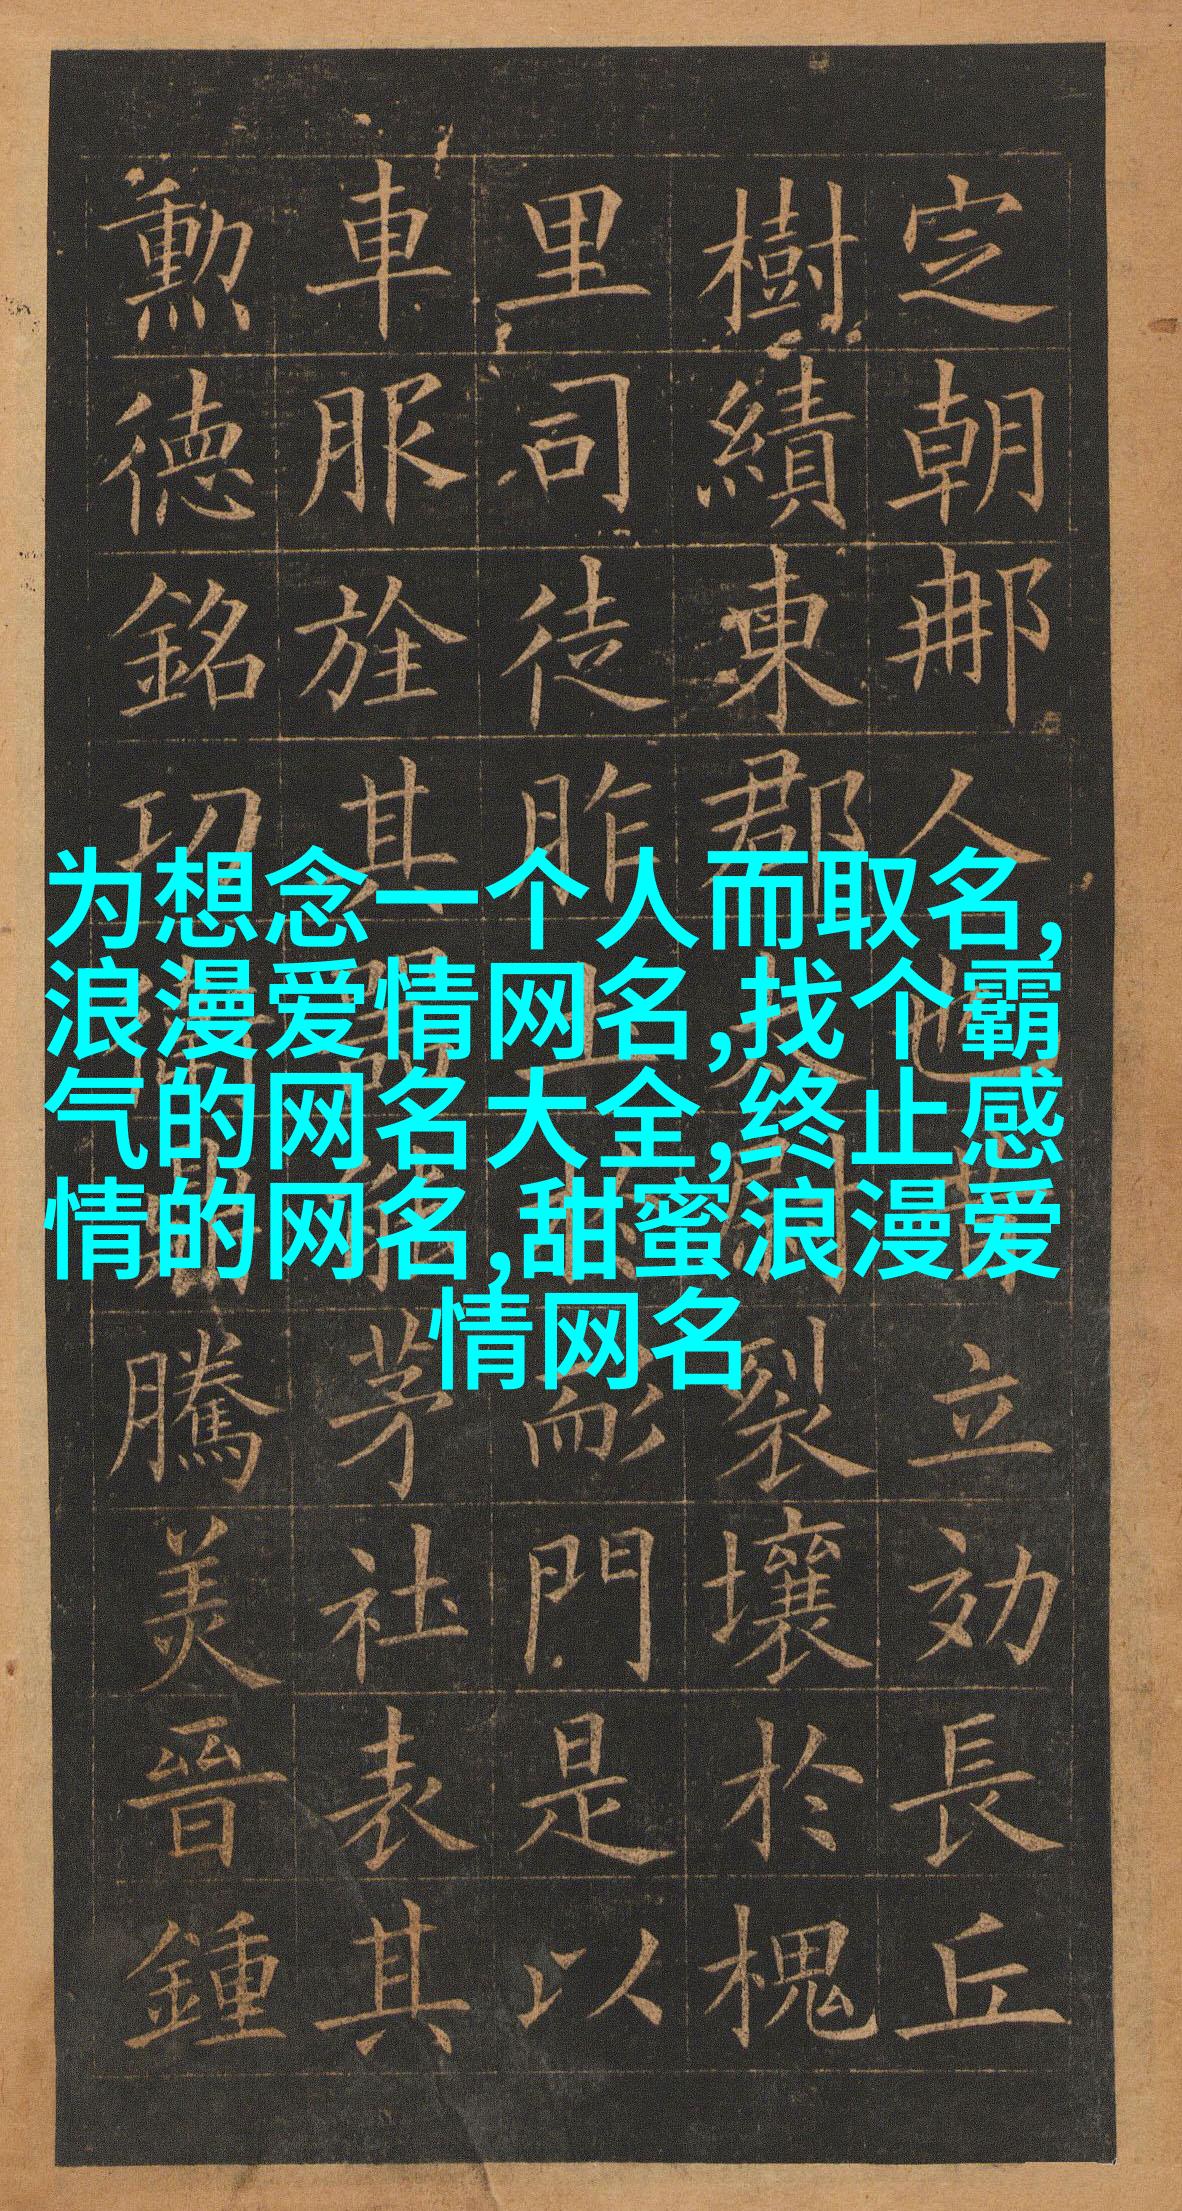 为想念一个人而取名,
浪漫爱情网名,找个霸
气的网名大全,终止感
情的网名,甜蜜浪漫爱
情网名
定朝那立効長丘
樹績東郡裂壤於槐
里司徒昨耏門是以
車服旌其茅社表其
勲德銘功騰美晉鍾